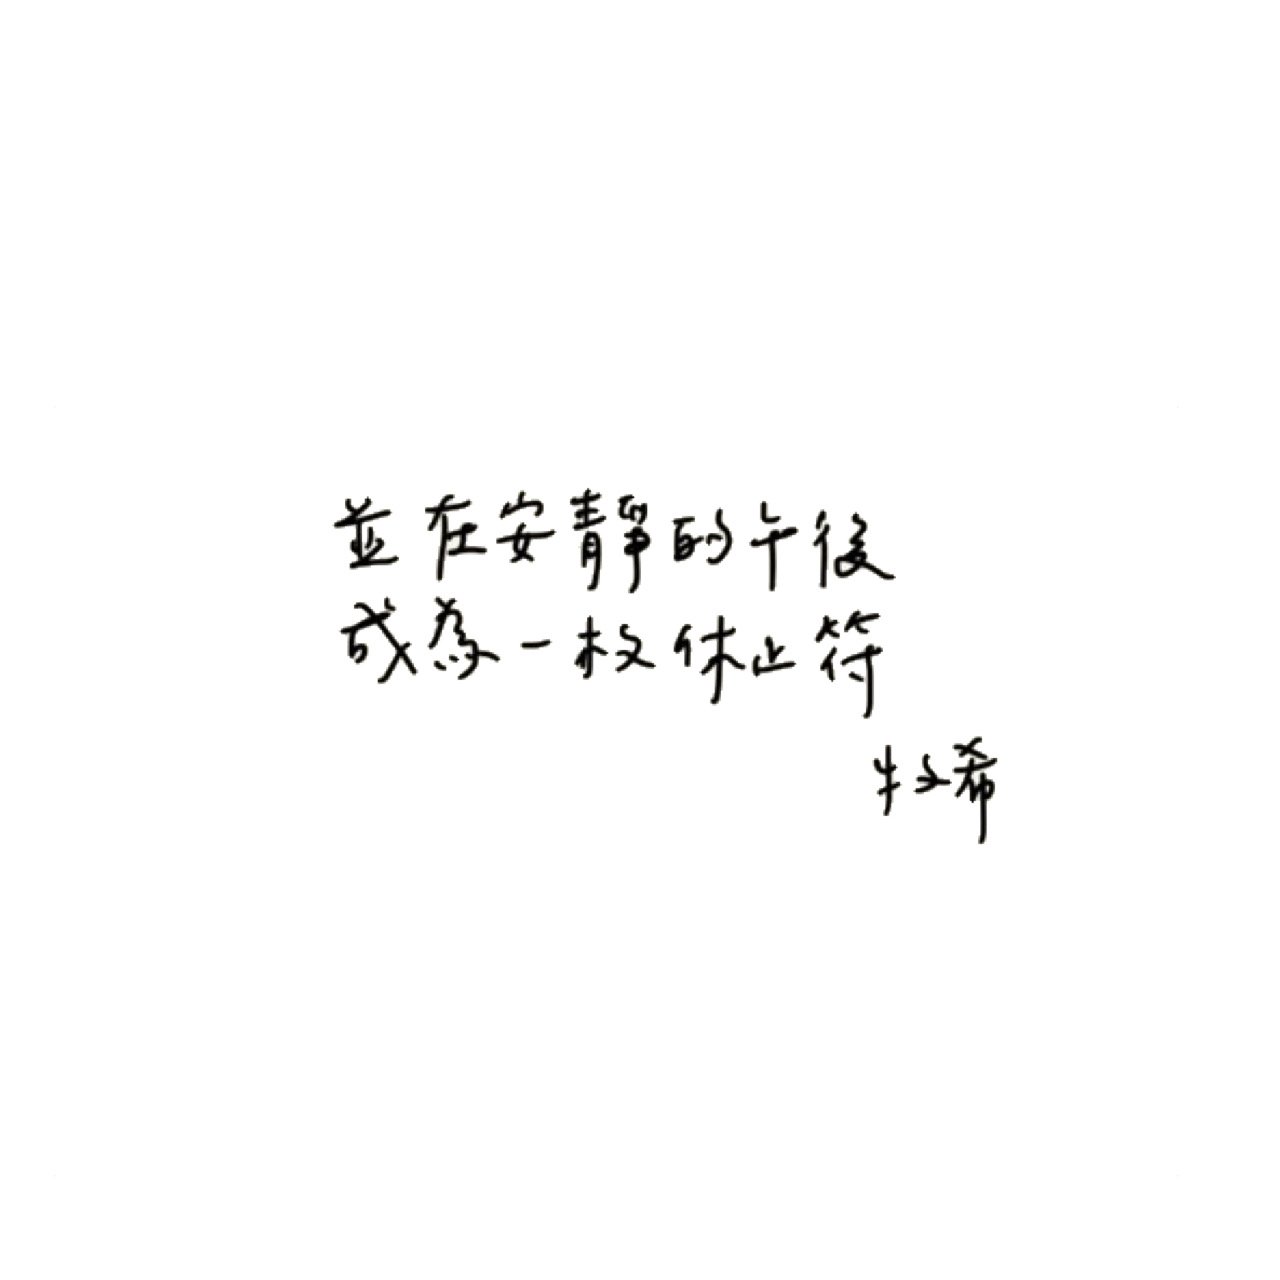 並在安靜的午後
成為一枚休止符
牧希